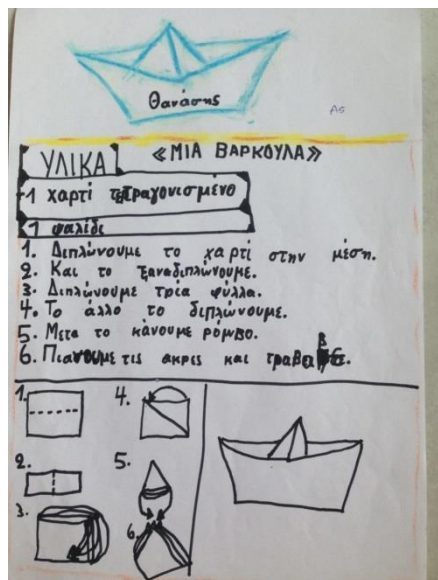 Θανάσης
Α5
«ΜΙΑ ΒΑΡΚΟΥΛΑ»
ΥΛΙΚΑ
-1 χαρτί τετραγονισμένο
1 ψαλίδι
1. Διπλώνουμε το χαρτί στην μέση.
2. Και το ξαναδιπλώνουμε.
3. Διπλώνουμε τρία φύλλα.
4. Το άλλο το διπλώνουμε.
5. Μετα το κάνουμε ρόμβο.
6. Πιανουμε τις ακρις και
1.
4.
2.
5.
3.
6.